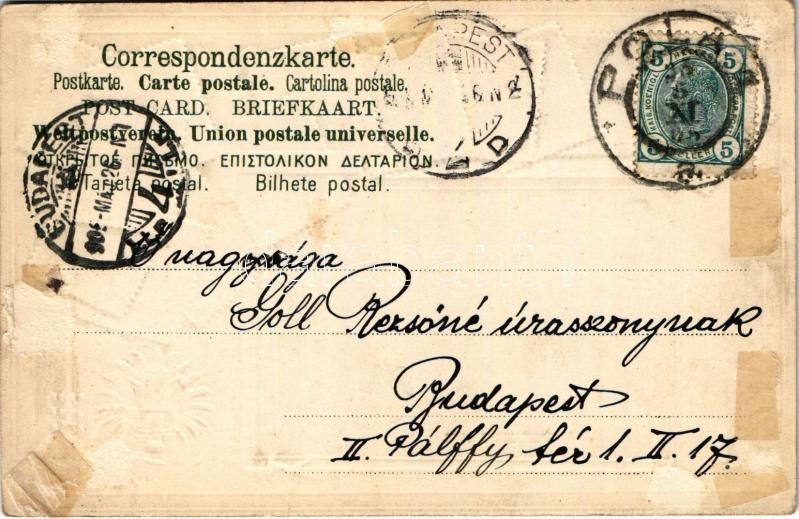 Correspondenzkarte.
Postkarte. Carte postale. Cartolina postale.
POST-CARD. BRIEFKAART.
Weltpostverein. Union postale universelle.
ОТКРЫТОЕ ПИСЬМО. ΕΠΙΣΤΟΛΙΚΟΝ ΔΕΛΤΑΡΙΟΝ.
Tarjeta postal. Bilhete postal.
BUDAPEST
POLA
5 5
5 HELLER 5
Ő nagysága
Goll Rezsőné úrasszonynak
Budapest
II. Pálffy tér 1. II. 17.